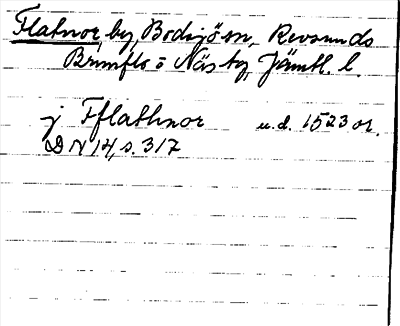 Flatnor by, Bodsjö sn, Revsunds
Brunflo o Näs tg, Jämtl. l.
j Fflathnor u.d. 1523 or.
DN 14, s. 317